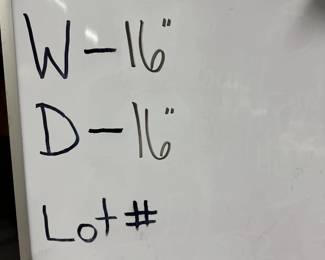 W - 16"
D - 16"
Lot #